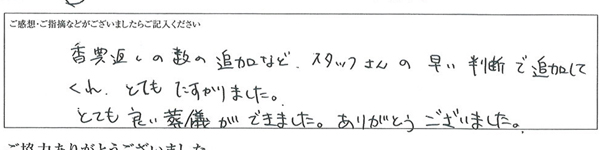 ご感想・ご指摘などがございましたらご記入ください
香典返しの数の追加など、スタッフさんの早い判断で追加して
くれ、とてもたすかりました。
とても良い葬儀ができました。ありがとうございました。
ご協力ありがとうございました